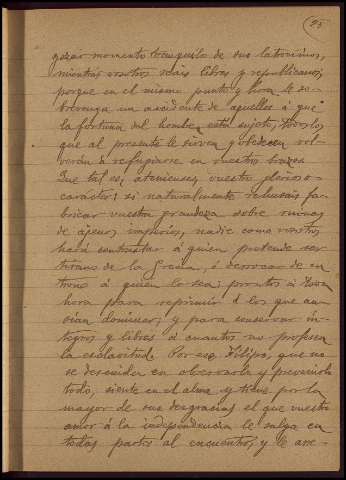 (95
gozar momento tranquilo de sus latrocinios,
mientras vosotros seáis libres y republicanos;
porque en el mismo punto y hora le so-
brevenga un accidente de aquellos á que
la fortuna del hombre está sujeta, todos los
que al presente le sirven y obedecen vol-
verán á refugiarse en vuestros brazos
Que tal es, atenienses, vuestro glorioso
caracter: si naturalmente rehusáis fa-
bricar vuestra grandeza sobre ruinas
de ajenos imperios, nadie como vosotros
hará contrastar á quien pretende ser
tirano de la Grecia, ó derrocar de su
trono á quien lo sea: prontos á toda
hora para reprimir á los que an-
sían dominar, y para conservar ín-
tegros y libres á cuantos no profesen
la esclavitud. Por eso Filipo, que no
se descuida en observarlo y prevenirlo
todo, siente en el alma y tiene por la
mayor de sus desgracias el que vuestro
amor á la independencia le salga en
todas partes al encuentro, y le arre-